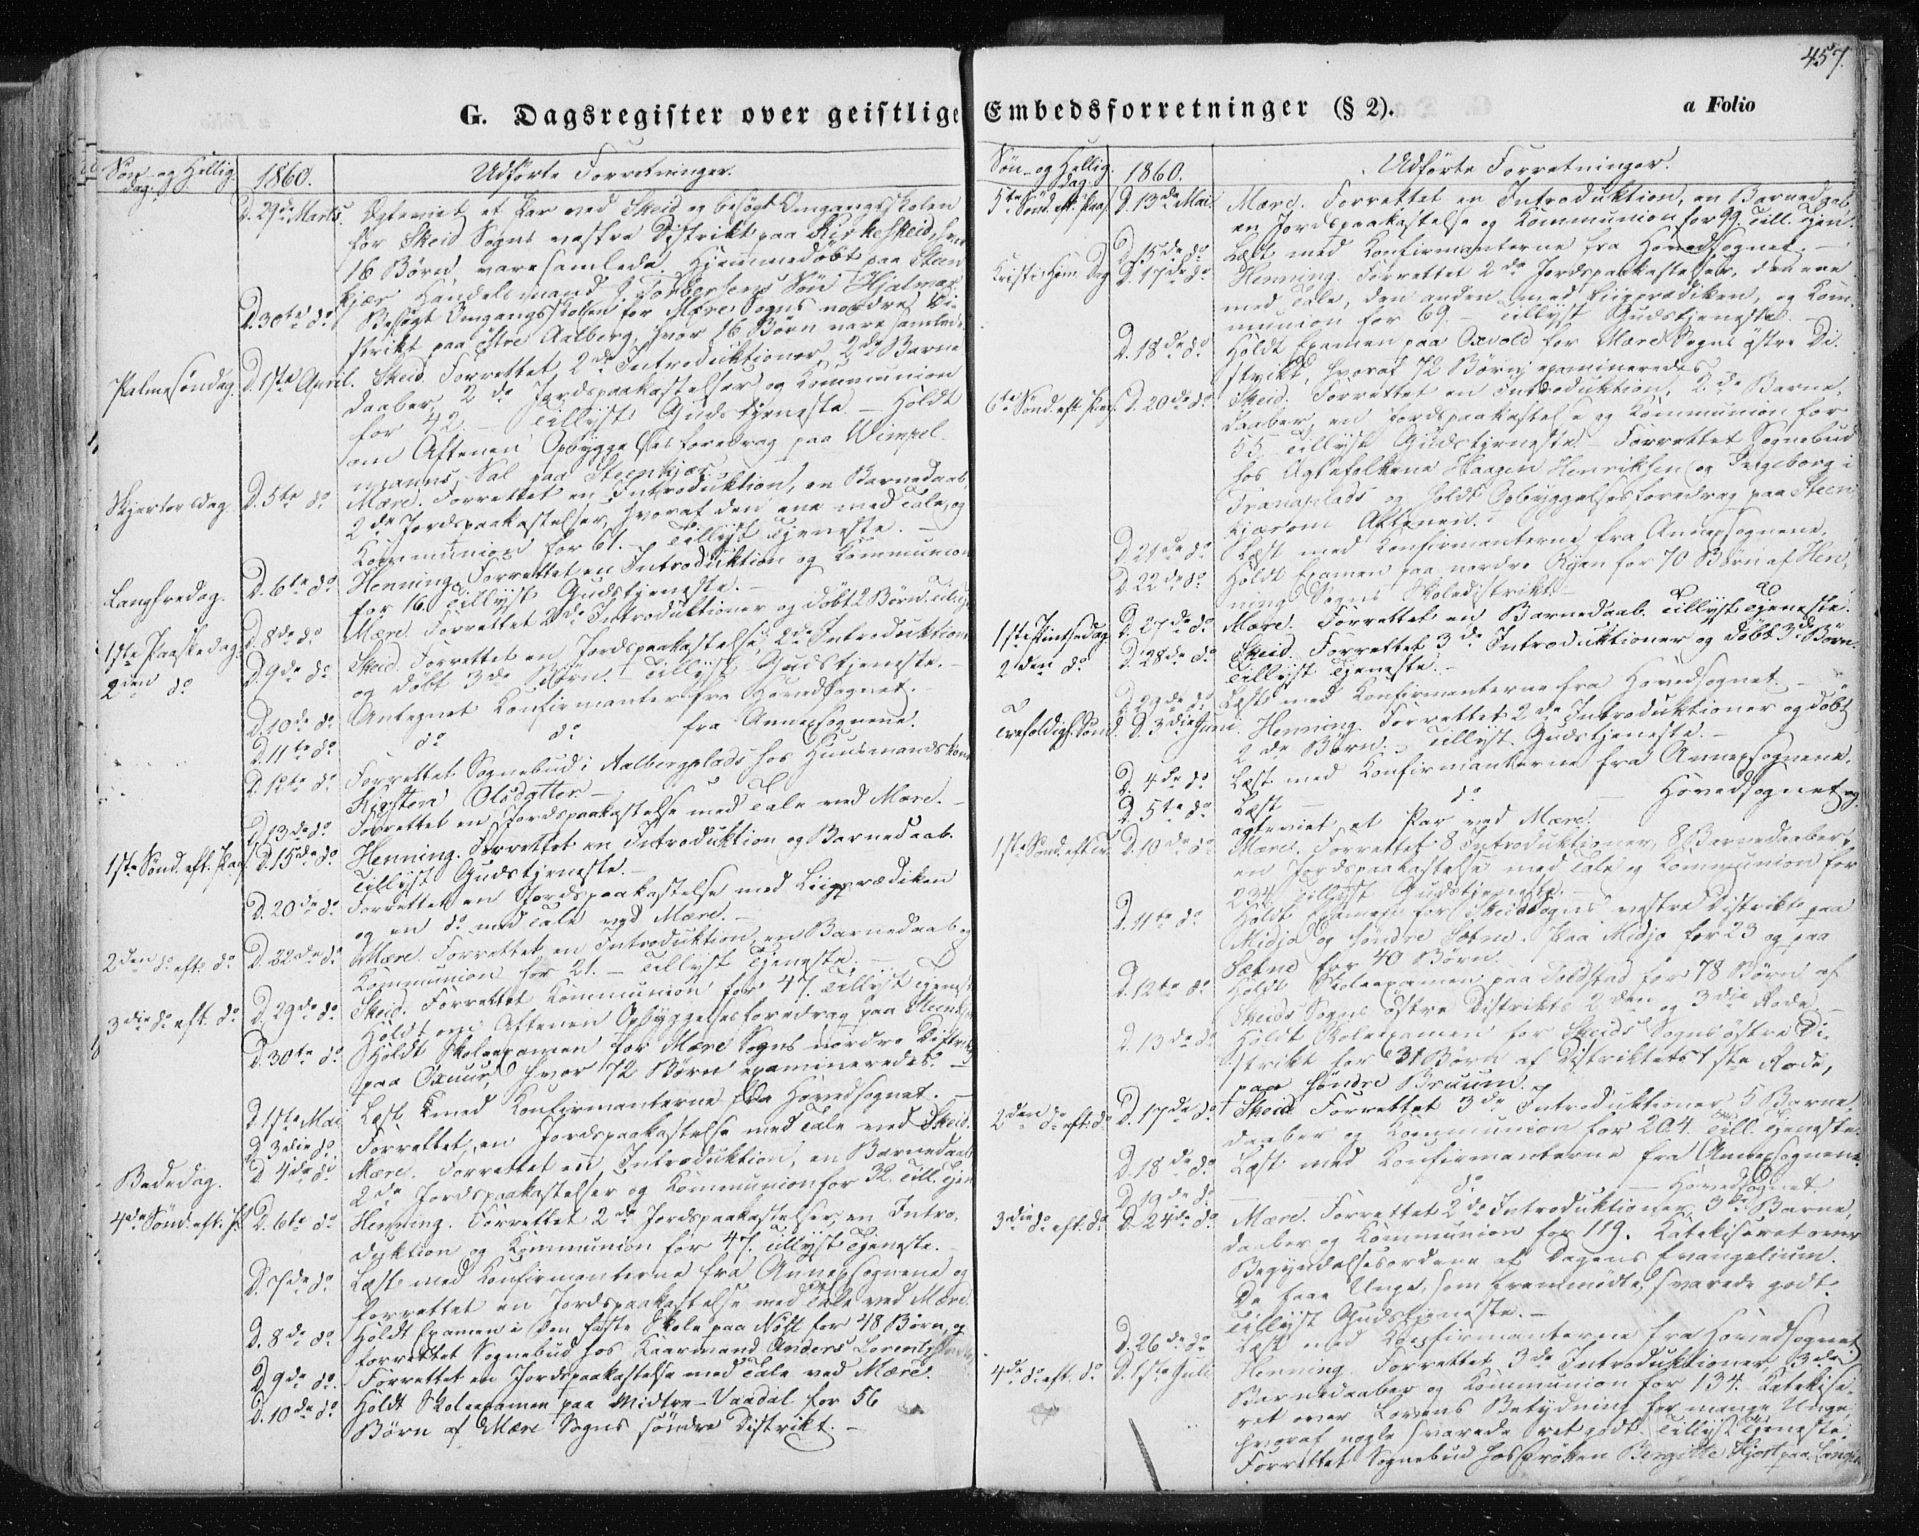 457.
G. Dagsregister over geistlige Embedsforretninger (§ 2). a Folio
Søn- og Hellig dag. 1860. Udførte Forretninger.
D. 29de Marts. Ægteviet et Par ved Skeid og besøgt Omgangsskolen
for Skeid Sogns vestre Distrikt paa Kirkeskeid, hvor
16 Børn vare samlede. Hjemmedøbt paa Steen
kjær Handelsmand Torbersens Søn Hjalmar.
D. 30te do Besøgt Omgangsskolen for Mære Sogns nordre Di-
strikt paa østre Aalberg, hvor 16 Børn vare samlede.
Palmesøndag. D. 1ste April. Skeid. Forrettet 2de Introduktioner, 2de Barne
daaber, 2de Jordspaakastelser og Kommunion
for 42. – Tillyst Gudstjeneste. – Holdt
om Aftenen Opbyggelsesforedrag paa Wimpel-
manns Sal paa Steenkjær.
Skjertorsdag. D. 5te do Mære. Forrettet en Introduktion, en Barnedaab,
2de Jordspaakastelser, hvoraf den ene med Tale, og
Kommunion for 61. – Tillyst Tjeneste. –
Langfredag. D. 6te do Henning. Forrettet en Introduktion og Kommunion
for 16. Tillyst Gudstjeneste. –
1ste Paaskedag. D. 8de do Mære. Forrettet 2de Introduktioner og døbt 2 Børn. Tillyst
2den do D. 9de do Skeid. Forrettet en Jordspaakastelse, 2de Introduktion
og døbt 3de Børn. – Tillyst Gudstjeneste. –
D. 10de do Antegnet Konfirmanter fra Hovedsognet. –
D. 11te do do do fra Annexsognene.
D. 12te do Forrettet Sognebud i Aalbergplads hos Huusmandskone
Kirsten Olsdatter. –
D. 13de do Forrettet en Jordspaakastelse med Tale ved Mære. –
1ste Sønd. eft. Paas. D. 15de do Henning. Forrettet en Introduktion og Barnedaab.
Tillyst Gudstjeneste. –
D. 20de do Forrettet en Jordspaakastelse med Liigprædiken
og en do med Tale ved Mære. –
2den do eft. do D. 22de do Mære. Forrettet en Introduktion, en Barnedaab og
Kommunion for 21. – Tillyst Tjeneste. –
3die do eft. do D. 29de do Skeid. Forrettet Kommunion for 47. Tillyst Tjeneste
Holdt om Aftenen Opbyggelsesforedrag paa Steenkjær
D. 30te do Holdt Skoleexamen for Mære Sogns nordre Distrikt
paa Oxuur, hvor 72 Børn examineredes. –
D. 1ste Mai Læst med Konfirmanterne fra Hovedsognet. –
D. 3die do Forrettet en Jordspaakastelse med Tale ved Skeid.
Bededag. D. 4de do Mære. Forrettet en Introduktion, en Barnedaab
2de Jordspaakastelser og Kommunion for 32. Till. Tjen
4de Sønd. eft. P. D. 6te do Henning. Forrettet 2de Jordspaakastelser, en Intro-
duktion og Kommunion for 47. Tillyst Tjeneste. –
D. 7de do Læst med Konfirmanterne fra Annexsognene og
forrettet en Jordspaakastelse med Tale ved Mære.
D. 8de do Holdt Examen i den faste Skole paa Nøst for 48 Børn, og
forrettet Sognebud hos Kaarmand Anders Lorentz
D. 9de do Forrettet en Jordspaakastelse med Tale ved Mære.
D. 10de do Holdt Skoleexamen paa Midtre-Vaadal for 56
Børn af Mære Sogns søndre Distrikt. –
Søn- og Hellig dag. 1860. Udførte Forretninger.
5te Sønd. eft. Paas. D. 13de Mai. Mære. Forrettet en Introduktion, en Barnedaab,
en Jordspaakastelse og Kommunion for 99. Till. Tjen.
D. 15de do Læst med Konfirmanterne fra Hovedsognet. –
Kristi Him. Dag D. 17de do Henning. Forrettet 2de Jordspaakastelser, den ene
med Tale, den anden med Liigprædiken, og Kom-
munion for 69. – Tillyst Gudstjeneste. –
D. 18de do Holdt Examen paa Oxvold for Mære Sogns østre Di-
strikt, hvoraf 72 Børn examineredes.
6te Sønd. eft. Paas. D. 20de do Skeid. Forrettet en Introduktion, 2de Barne-
daaber, en Jordspaakastelse og Kommunion for
55. Tillyst Gudstjeneste. Forrettet Sognebud
hos Ægtefolkene Haagen Henriksen og Ingeborg i
Tranaplads og holdt Opbyggelsesforedrag paa Steen
kjær om Aftenen.
D. 21de do Læst med Konfirmanterne fra Annexsognene.
D. 22de do Holdt Examen paa nordre Kjen for 70 Børn af Hen-
ning Sogns Skoledistrikt.
1ste Pintsedag D. 27de do Mære. Forrettet en Barnedaab. Tillyst Tjeneste.
2den do D. 28de do Skeid. Forrettet 3de Introduktioner og døbt 3de Børn.
Tillyst Tjeneste. –
D. 29de do Læst med Konfirmanterne fra Hovedsognet. –
Trefoldigh. Sønd. D. 3die Juni. Henning. Forrettet 2de Introduktioner og døbt
2de Børn. – Tillyst Gudstjeneste. –
D. 4de do Læst med Konfirmanterne fra Annexsognene.
D. 5te do Læst – do – Hovedsognet og
ægteviet et Par ved Mære.
1ste Sønd. eft. Tr. D. 10de do Mære. Forrettet 8 Introduktioner, 8 Barnedaaber,
en Jordspaakastelse med Tale og Kommunion for
234. Tillyst Gudstjeneste. –
D. 11te do Holdt Examen for Skeid Sogns vestre Distrikt paa
Midjo og søndre Sætne. Paa Midjo for 23 og paa
Sætne for 40 Børn.
D. 12te do Holdt Skoleexamen paa Toldstad for 78 Børn af
Skeids Sogns østre Distrikts 2den og 3die Rode
D. 13de do Holdt Skoleexamen for Skeids Sogns østre Di-
strikt for 31 Børn af Distriktets 1ste Rode,
paa søndre Bruum.
2den do eft. do D. 17de do Skeid. Forrettet 3de Introduktioner, 5 Barne-
daaber og Kommunion for 204. Till. Tjeneste.
D. 18de do Læst med Konfirmanterne fra Annexsognene.
D. 19de do – do – Hovedsognet.
3die do eft. do D. 24de do Mære. Forrettet 2de Introduktioner, 3de Barne-
daaber og Kommunion for 119. Katekiseret over
Begyndelsesordene af Dagens Evangelium.
De faae Unge, som fremmødte, svarede godt.
Tillyst Gudstjeneste. –
D. 26de do Læst med Konfirmanterne fra Hovedsognet.
4de do eft. do D. 1ste Juli Henning. Forrettet 3de Introduktioner, 3de
Barnedaaber og Kommunion for 134. Katekise-
ret over Lovens Betydning for mange Unge,
hvoraf nogle svarede ret godt. Tillyst Tjeneste.
Forrettet Sognebud hos Frøken Bergitte Hjort paa